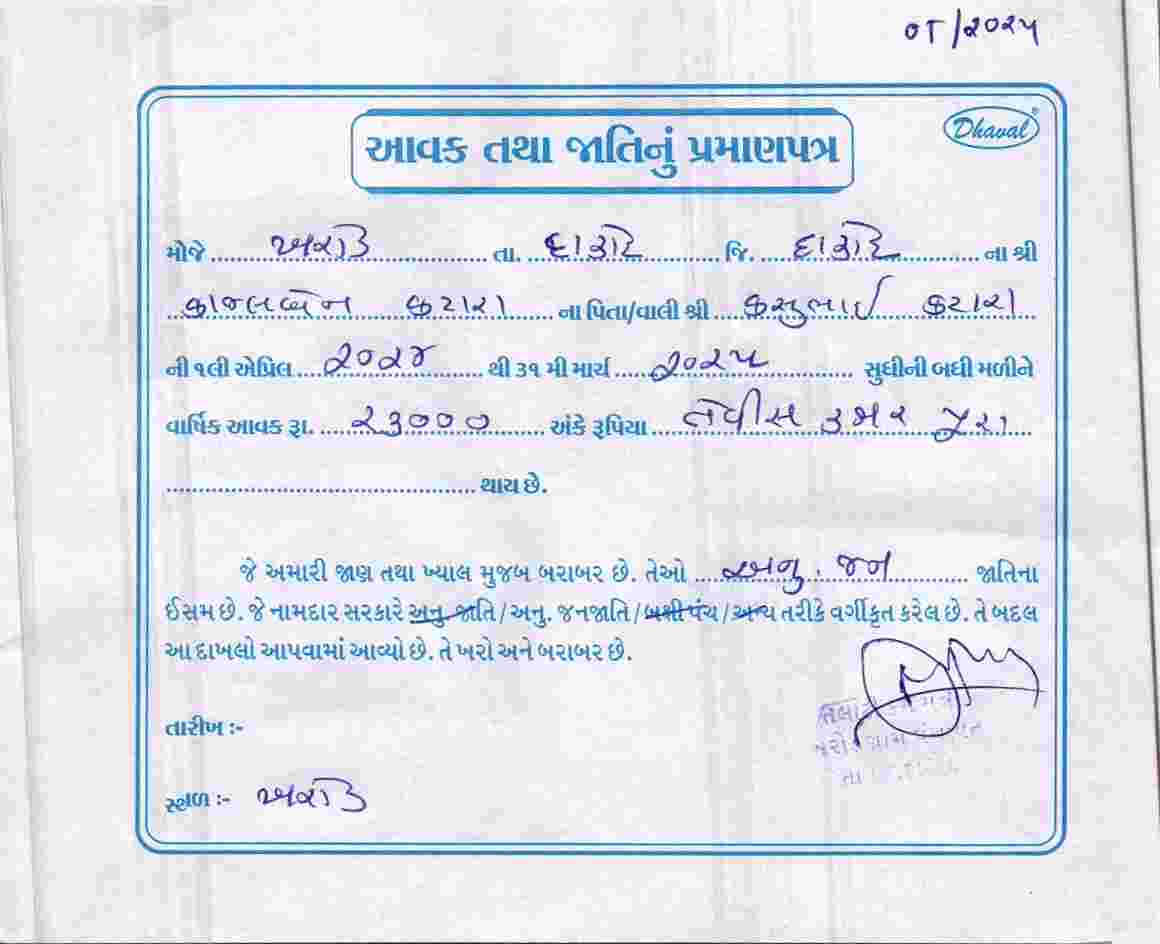 ૦૧/૨૦૨૫
Dhaval
આવક તથા જાતિનું પ્રમાણપત્ર
મોજે ખરોડ તા. દાહોદ જિ. દાહોદ ના શ્રી
કાજલબેન કટારા ના પિતા/વાલી શ્રી કસુભાઈ કટારા
ની ૧લી એપ્રિલ ૨૦૨૪ થી ૩૧ મી માર્ચ ૨૦૨૫ સુધીની બધી મળીને
વાર્ષિક આવક રૂા. ૨૩૦૦૦ અંકે રૂપિયા તેવીસ હજાર પુરા
થાય છે.
જે અમારી જાણ તથા ખ્યાલ મુજબ બરાબર છે. તેઓ અનુ. જન જાતિના
ઈસમ છે. જે નામદાર સરકારે અનુ. જાતિ/અનુ. જનજાતિ/બક્ષી પંચ/અન્ય તરીકે વર્ગીકૃત કરેલ છે. તે બદલ
આ દાખલો આપવામાં આવ્યો છે. તે ખરો અને બરાબર છે.
તારીખ :-
સ્થળ :- ખરોડ